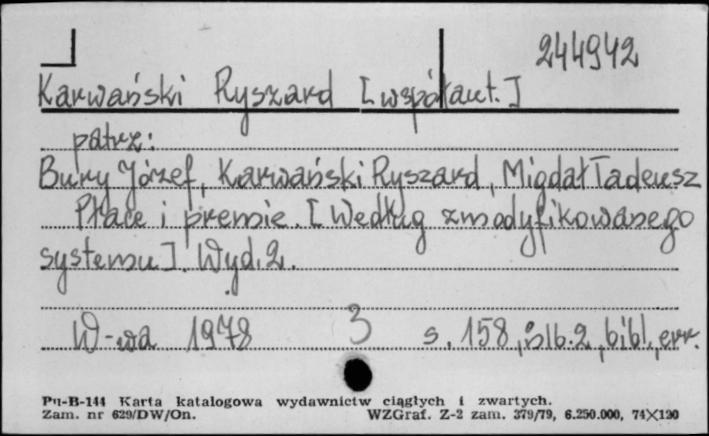 244942
Karwański Ryszard [współaut.]
patrz:
Bury Józef, Karwański Ryszard, Migdał Tadeusz
Płace i premie. [Według zmodyfikowanego
systemu]. Wyd. 2.
W-wa 1978 3 s. 158, slb. 2, bibl., err.
Pu-B-144 Karta katalogowa wydawnictw ciągłych i zwartych.
Zam. nr 629/DW/On. WZGraf. Z-2 zam. 379/79, 6.250.000, 74×120